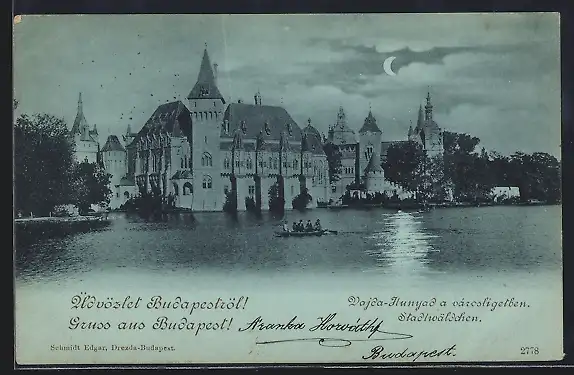 Üdvözlet Budapestről!
Gruss aus Budapest!
Vajda-Hunyad a városligetben.
Stadtwäldchen.
Aranka Horváth
Budapest.
Schmidt Edgar, Drezda-Budapest.
2778